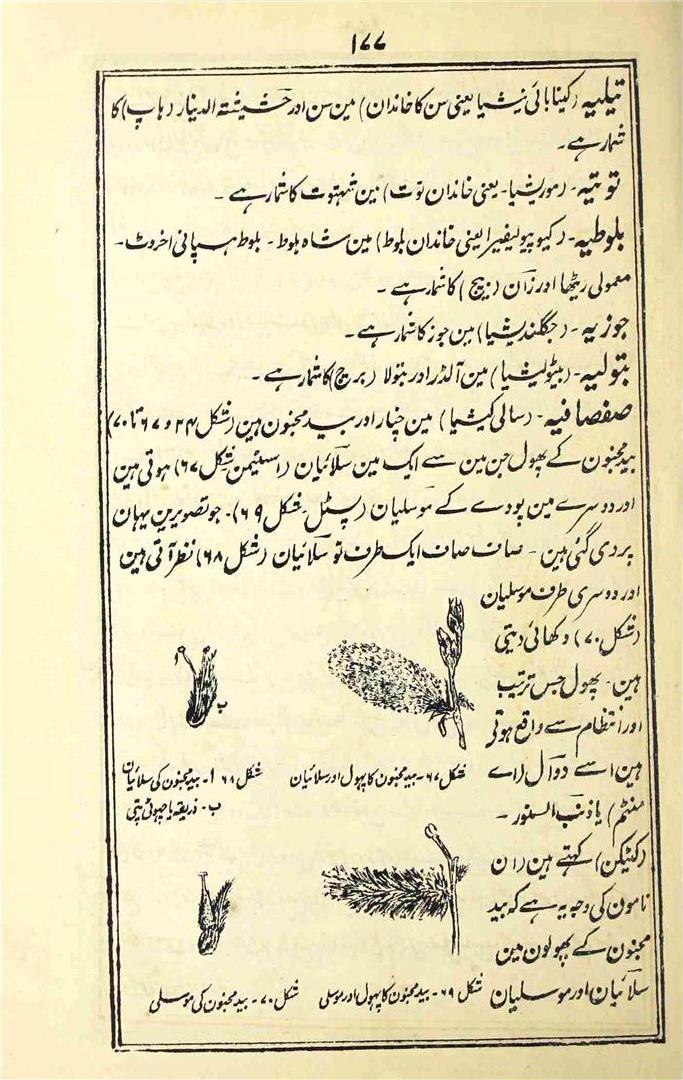 ۱۷۷
تیلیہ (کینابائی نیشیا یعنی سن کا خاندان) مین سن اور حشیشتہ الدینار (ہاپ) کا
شمار ہے۔
توتیہ۔ (موریشیا۔ یعنی خاندان توت) مین شہتوت کا شمار ہے۔
بلوطیہ۔ (کیوپیولیفیرا یعنی خاندان بلوط) مین شاہ بلوط۔ بلوط ہسپانی اخروٹ۔
معمولی ریٹھا اور زان (بیچ) کا شمار ہے۔
جوزیہ۔ (جگلندیشیا) مین جوز کا شمار ہے۔
بتولیہ۔ (بیٹولیشیا) مین آلڈر اور بتولا (برچ) کا شمار ہے۔
صفصافیہ۔ (سالی کیشیا) مین چنار اور بید مجنون ہین (شکل ۲۴ و ۶۷ تا ۷۰)
بید مجنون کے پھول جن مین سے ایک مین سلائیان (اسٹیمن شکل ۶۷) ہوتی ہین
اور دوسرے مین پودے کے موسلیان (پسٹل شکل ۶۹)۔ جو تصویرین یہان
پر دی گئی ہین۔ صاف صاف ایک طرف تو سلائیان (شکل ۶۸) نظر آتی ہین
اور دوسری طرف موسلیان
(شکل ۷۰) دکھائی دیتی
ہین۔ پھول جس ترتیب
اور انتظام سے واقع ہوتی
ہین اسے دوال (اے
منٹم) یا ذنب السنور۔
(کٹیکن) کہتے ہین (ان
نامون کی وجہ یہ ہے کہ بید
مجنون کے پھولون مین
سلائیان اور موسلیان
۱
۲
شکل ۶۷۔ بید مجنون کا پہول اور سلائیان
شکل ۶۸ ا۔ بید مجنون کی سلائیان
ب۔ زریقہ یا چھوٹی پتی
شکل ۶۹۔ بید مجنون کا پہول اور موسلی
شکل ۷۰۔ بید مجنون کی موسلی